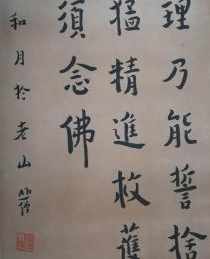 理乃能誓捨
猛精進救護
須念佛
和月於老山